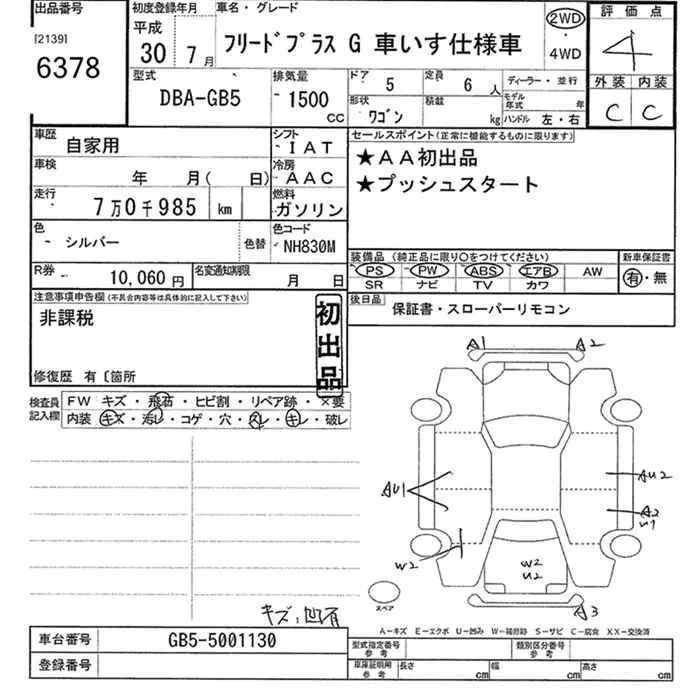 出品番号 初度登録年月 車名・グレード 評価点
[2139] 6378
平成 30年 7月
フリードプラス G 車いす仕様車
2WD ・ 4WD
4
型式 排気量 ドア 定員
DBA-GB5 - 1500 CC 5 6 人
ディーラー・並行
外装 内装
形状 ワゴン 積載 kg
モデル年式 年
ハンドル 左・右
C C
車歴 自家用
シフト - IAT
セールスポイント(正常に機能するものに限ります)
★AA初出品
★プッシュスタート
車検 年 月( 日)
冷房 - AAC
走行 7万0千985 km
燃料 ガソリン
色 - シルバー 色替
色コード NH830M
装備品 (純正品に限り○をつけてください) 新車保証書
PS PW ABS エアB AW
SR ナビ TV カワ
有・無
R券 - 10,060円 名変通知期限 月 日
注意事項申告欄(不具合内容等は具体的に記入して下さい)
非課税
初出品
後日品 保証書・スローパーリモコン
修復歴 有 〔箇所
検査員記入欄
FW キズ・飛石・ヒビ割・リペア跡・×要
内装・キズ・汚レ・コゲ・穴・スレ・キレ・破レ
A1 A2
AU1 AU2
A2
U1
W2
W2
U2
スペア
A3
キズ、凹有
A-キズ E-エクボ U-凹み W-補修跡 S-サビ C-腐食 XX-交換済
車台番号 GB5-5001130
型式指定番号 参考 類別区分番号 参考
登録番号
車庫証明用 参考 長さ cm 幅 cm 高さ cm